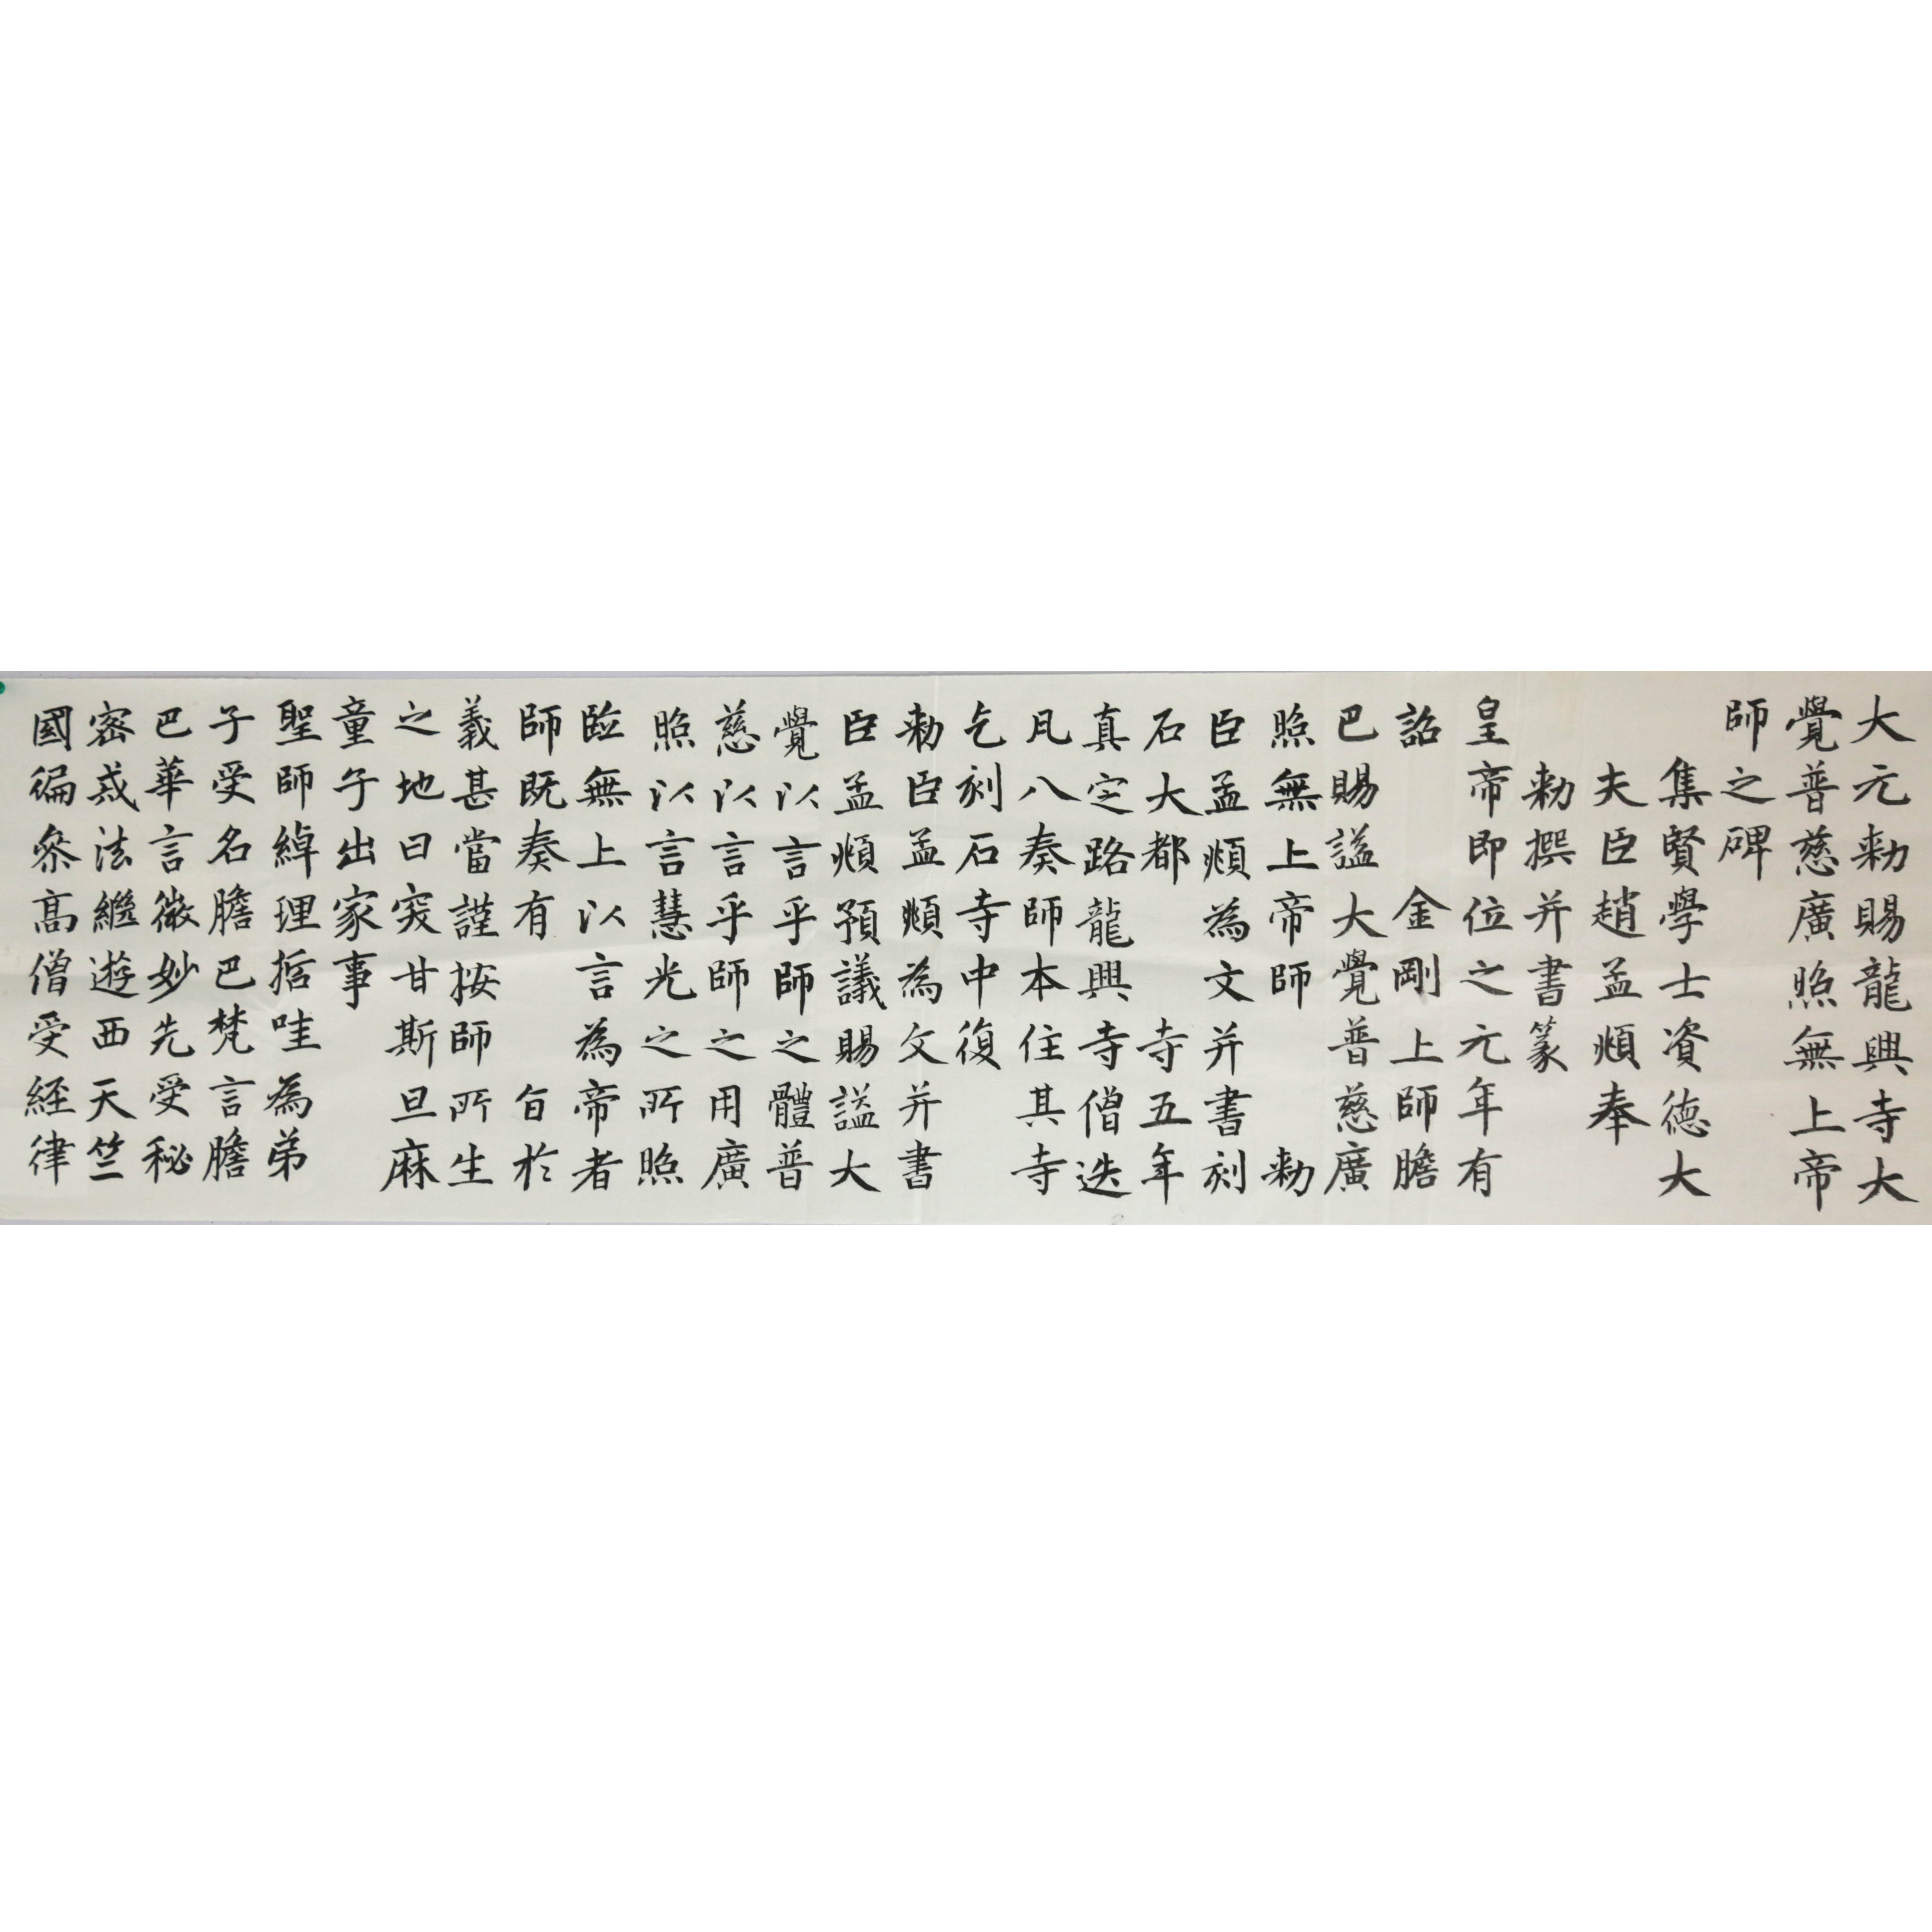 大元勑賜龍興寺大
覺普慈廣照無上帝
師之碑
集賢學士資德大
夫臣趙孟頫奉
勑撰并書篆
皇帝即位之元年有
詔金剛上師膽
巴賜謚大覺普慈廣
照無上帝師勑
臣孟頫為文并書刻
石大都寺五年
真定路龍興寺僧迭
凡八奏師本住其寺
乞刻石寺中復
勑臣孟頫為文并書
臣孟頫預議賜謚大
覺以言乎師之體普
慈以言乎師之用廣
照以言慧光之所照
臨無上以言為帝者
師既奏有旨於
義甚當謹按師所生
之地曰突甘斯旦麻
童子出家事
聖師綽理哲哇為弟
子受名膽巴梵言膽
巴華言微妙先受秘
密戒法繼遊西天竺
國徧叅高僧受經律